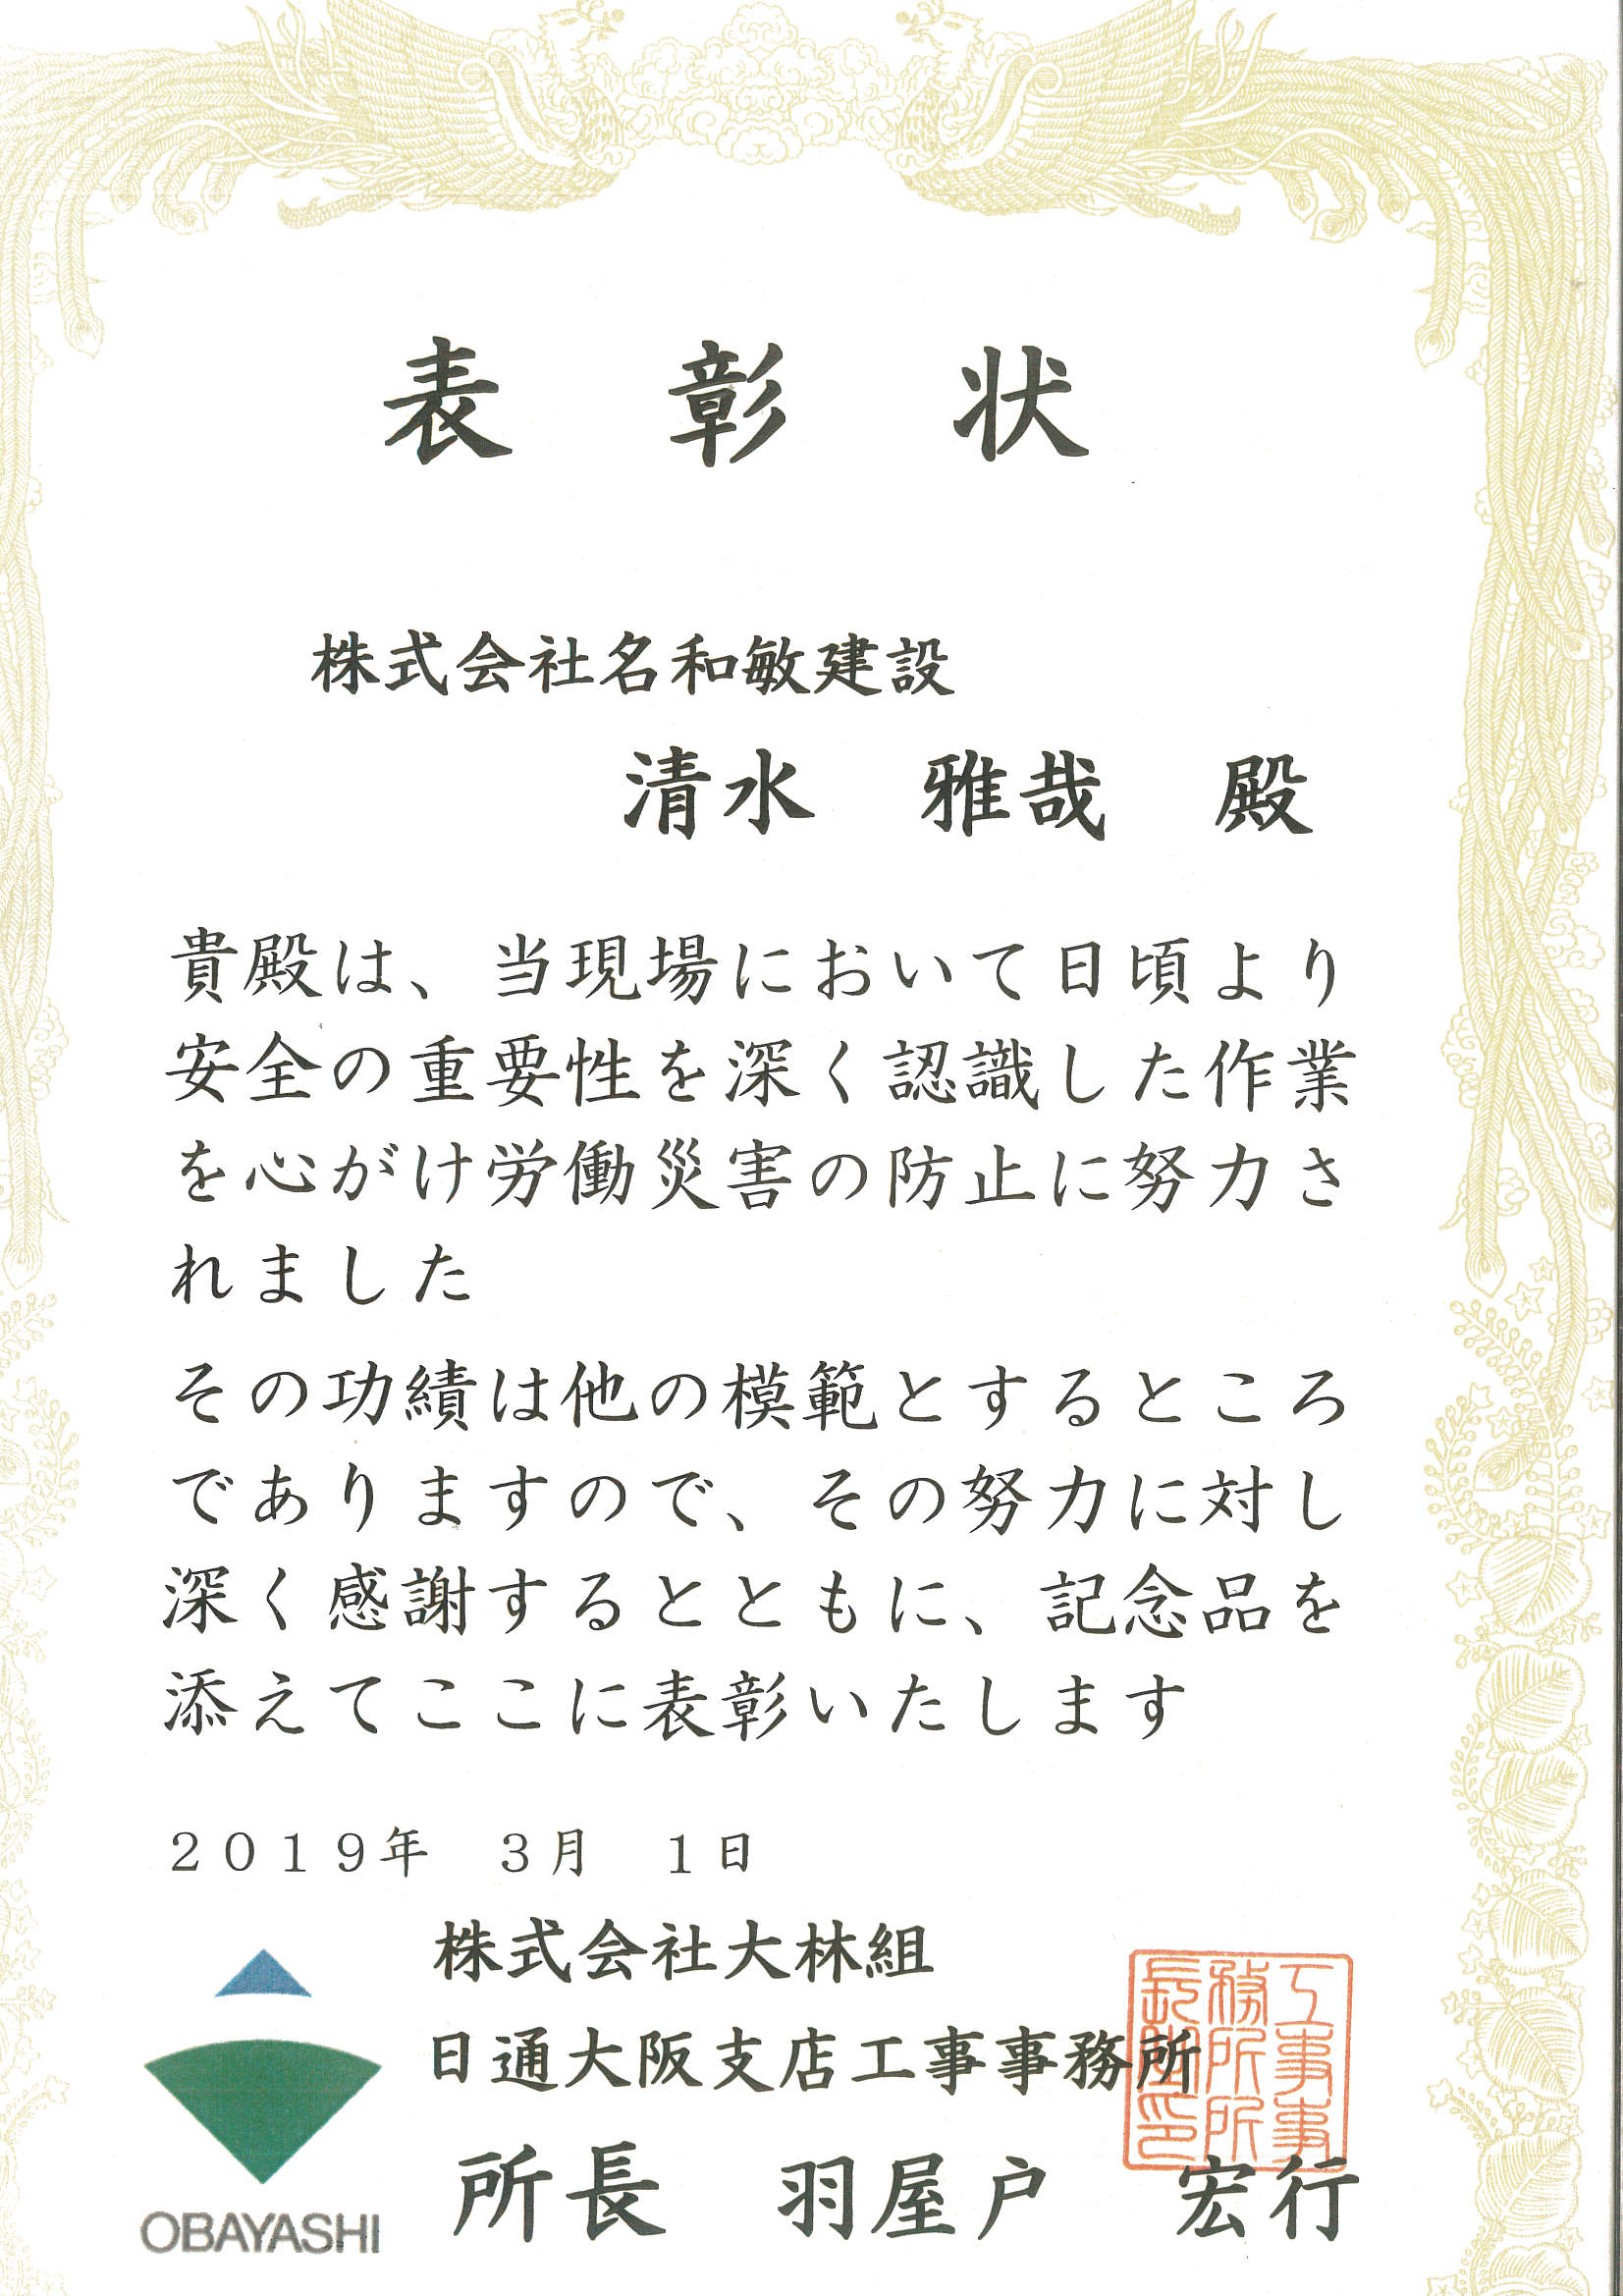 表 彰 状
株式会社名和敏建設
清水 雅哉 殿
貴殿は、当現場において日頃より
安全の重要性を深く認識した作業
を心がけ労働災害の防止に努力さ
れました
その功績は他の模範とするところ
でありますので、その努力に対し
深く感謝するとともに、記念品を
添えてここに表彰いたします
２０１９年 ３月 １日
株式会社大林組
日通大阪支店工事事務所
所長 羽屋戸 宏行
OBAYASHI
工事事
務所所